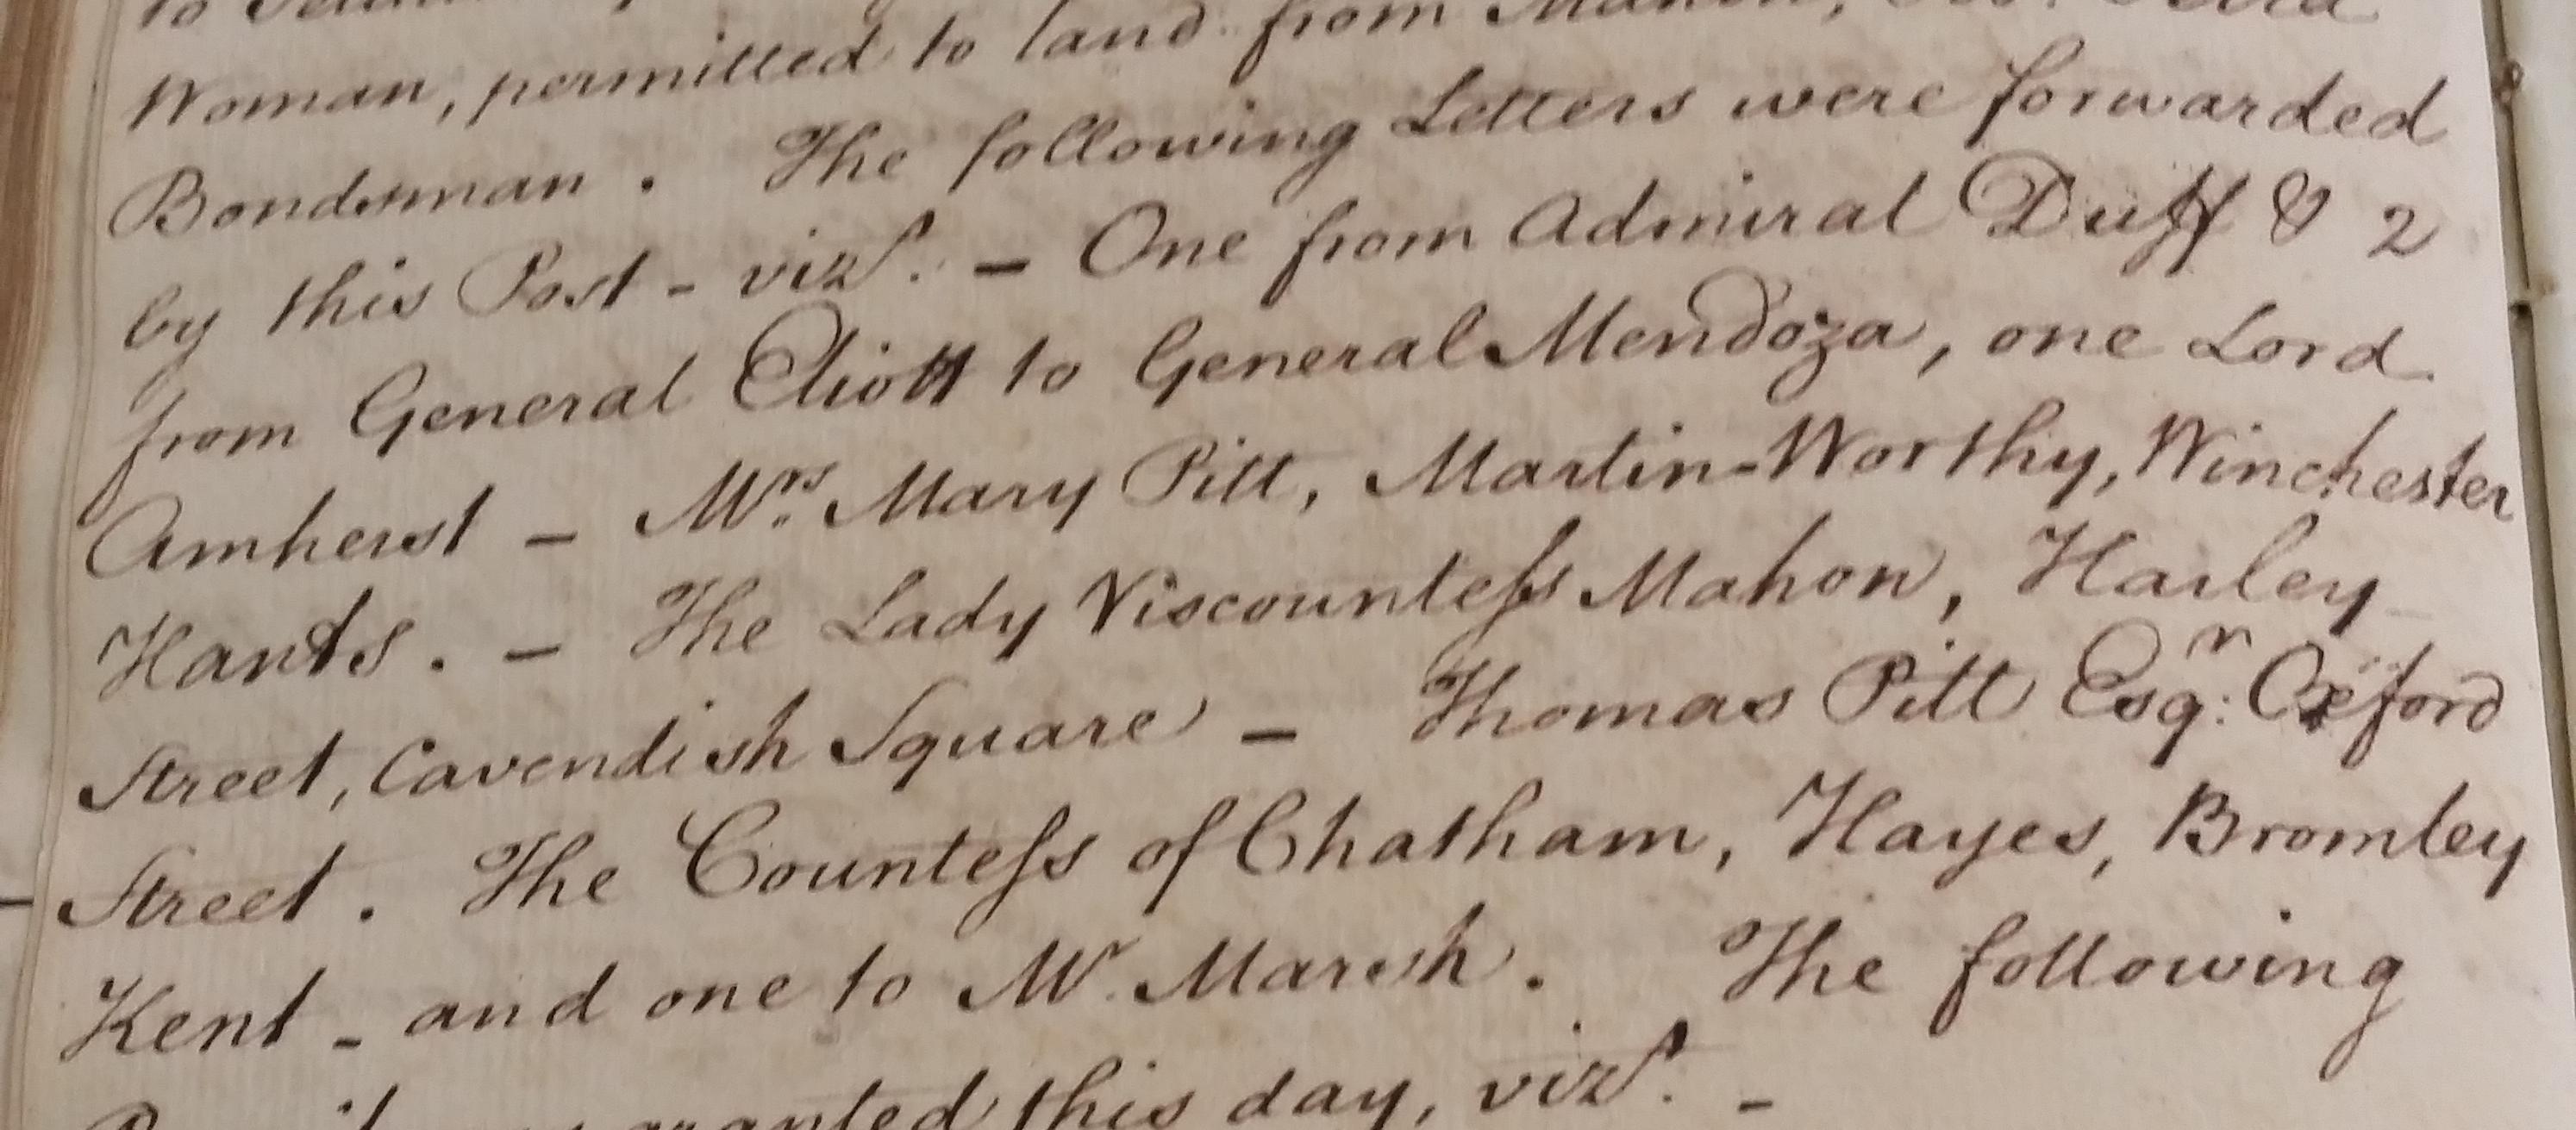 to
Woman, permitted to land from Mahon,
Bondsman. The following Letters were forwarded
by this Post - vizt. - One from Admiral Duff & 2
from General Eliott to General Mendoza, one Lord
Amherst - Mrs. Mary Pitt, Martin-Worthy, Winchester
Hants. - The Lady Viscounteſs Mahon, Harley
Street, Cavendish Square - Thomas Pitt Esqr: Oxford
Street. The Counteſs of Chatham, Hayes, Bromley
Kent - and one to Mr. Marsh. The following
granted this day, vizt. -